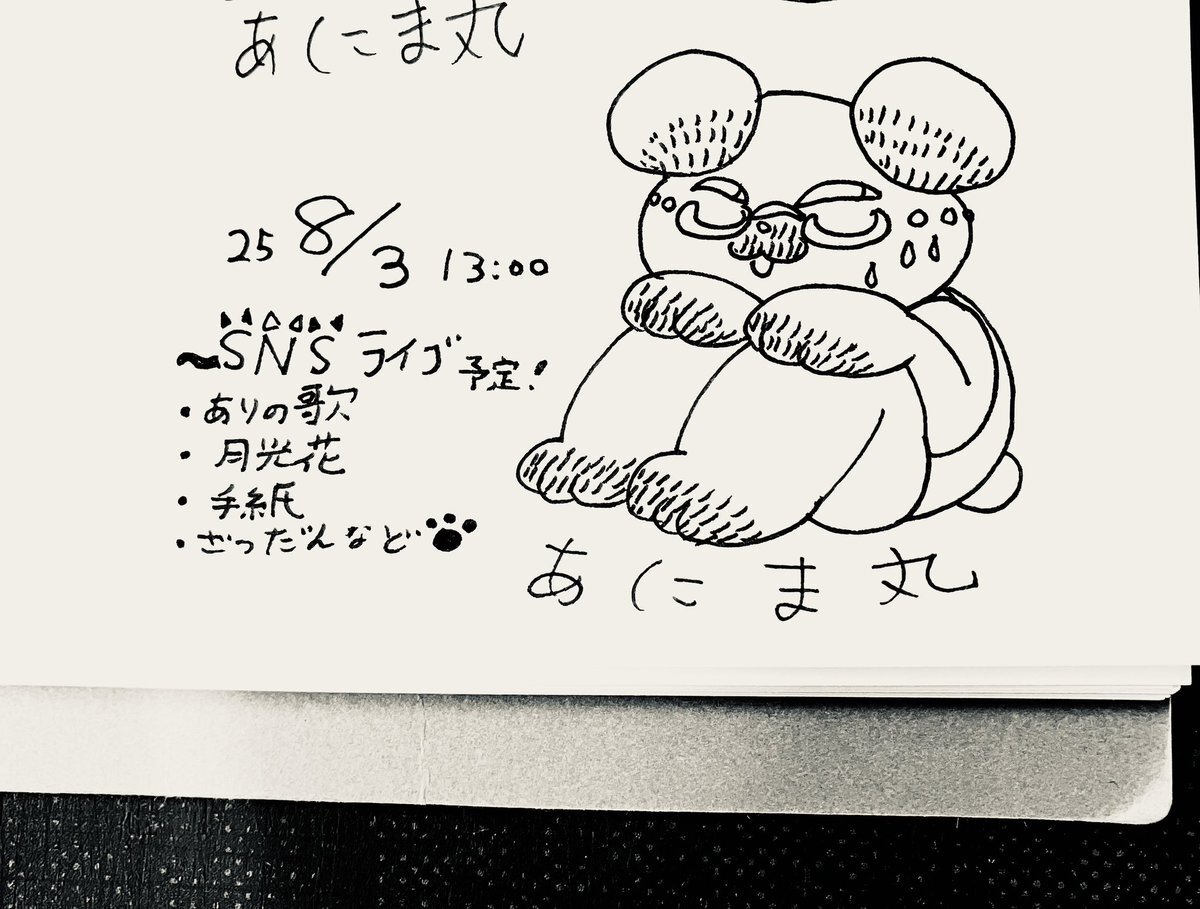 あにま丸
25 8/3 13:00
~SNS ライブ予定!
・ありの歌
・月光花
・手紙
・ざつだんなど
あにま丸